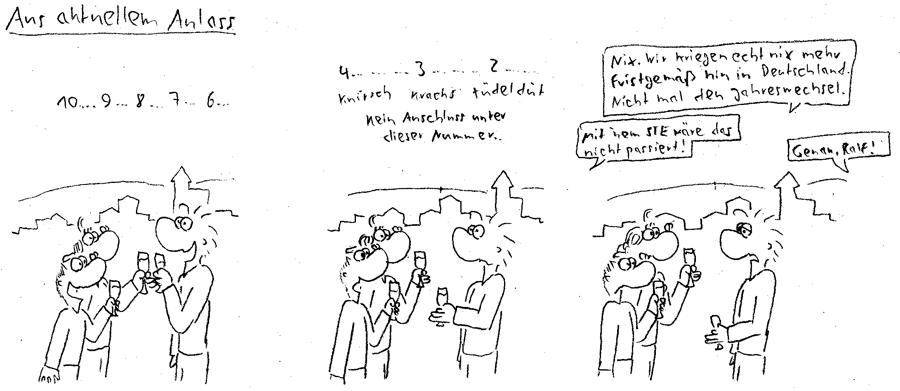 Aus aktuellem Anlass
10.... 9... 8... 7... 6...
4... ... ... 3... ... ... 2... ...
knirsch krachs tüdeldüt
Kein Anschluss unter
dieser Nummer..
Nix. Wir kriegen echt nix mehr
fristgemäß hin in Deutschland.
Nicht mal den Jahreswechsel.
Mit nem STE wäre das
nicht passiert!
Genau, Ralf!